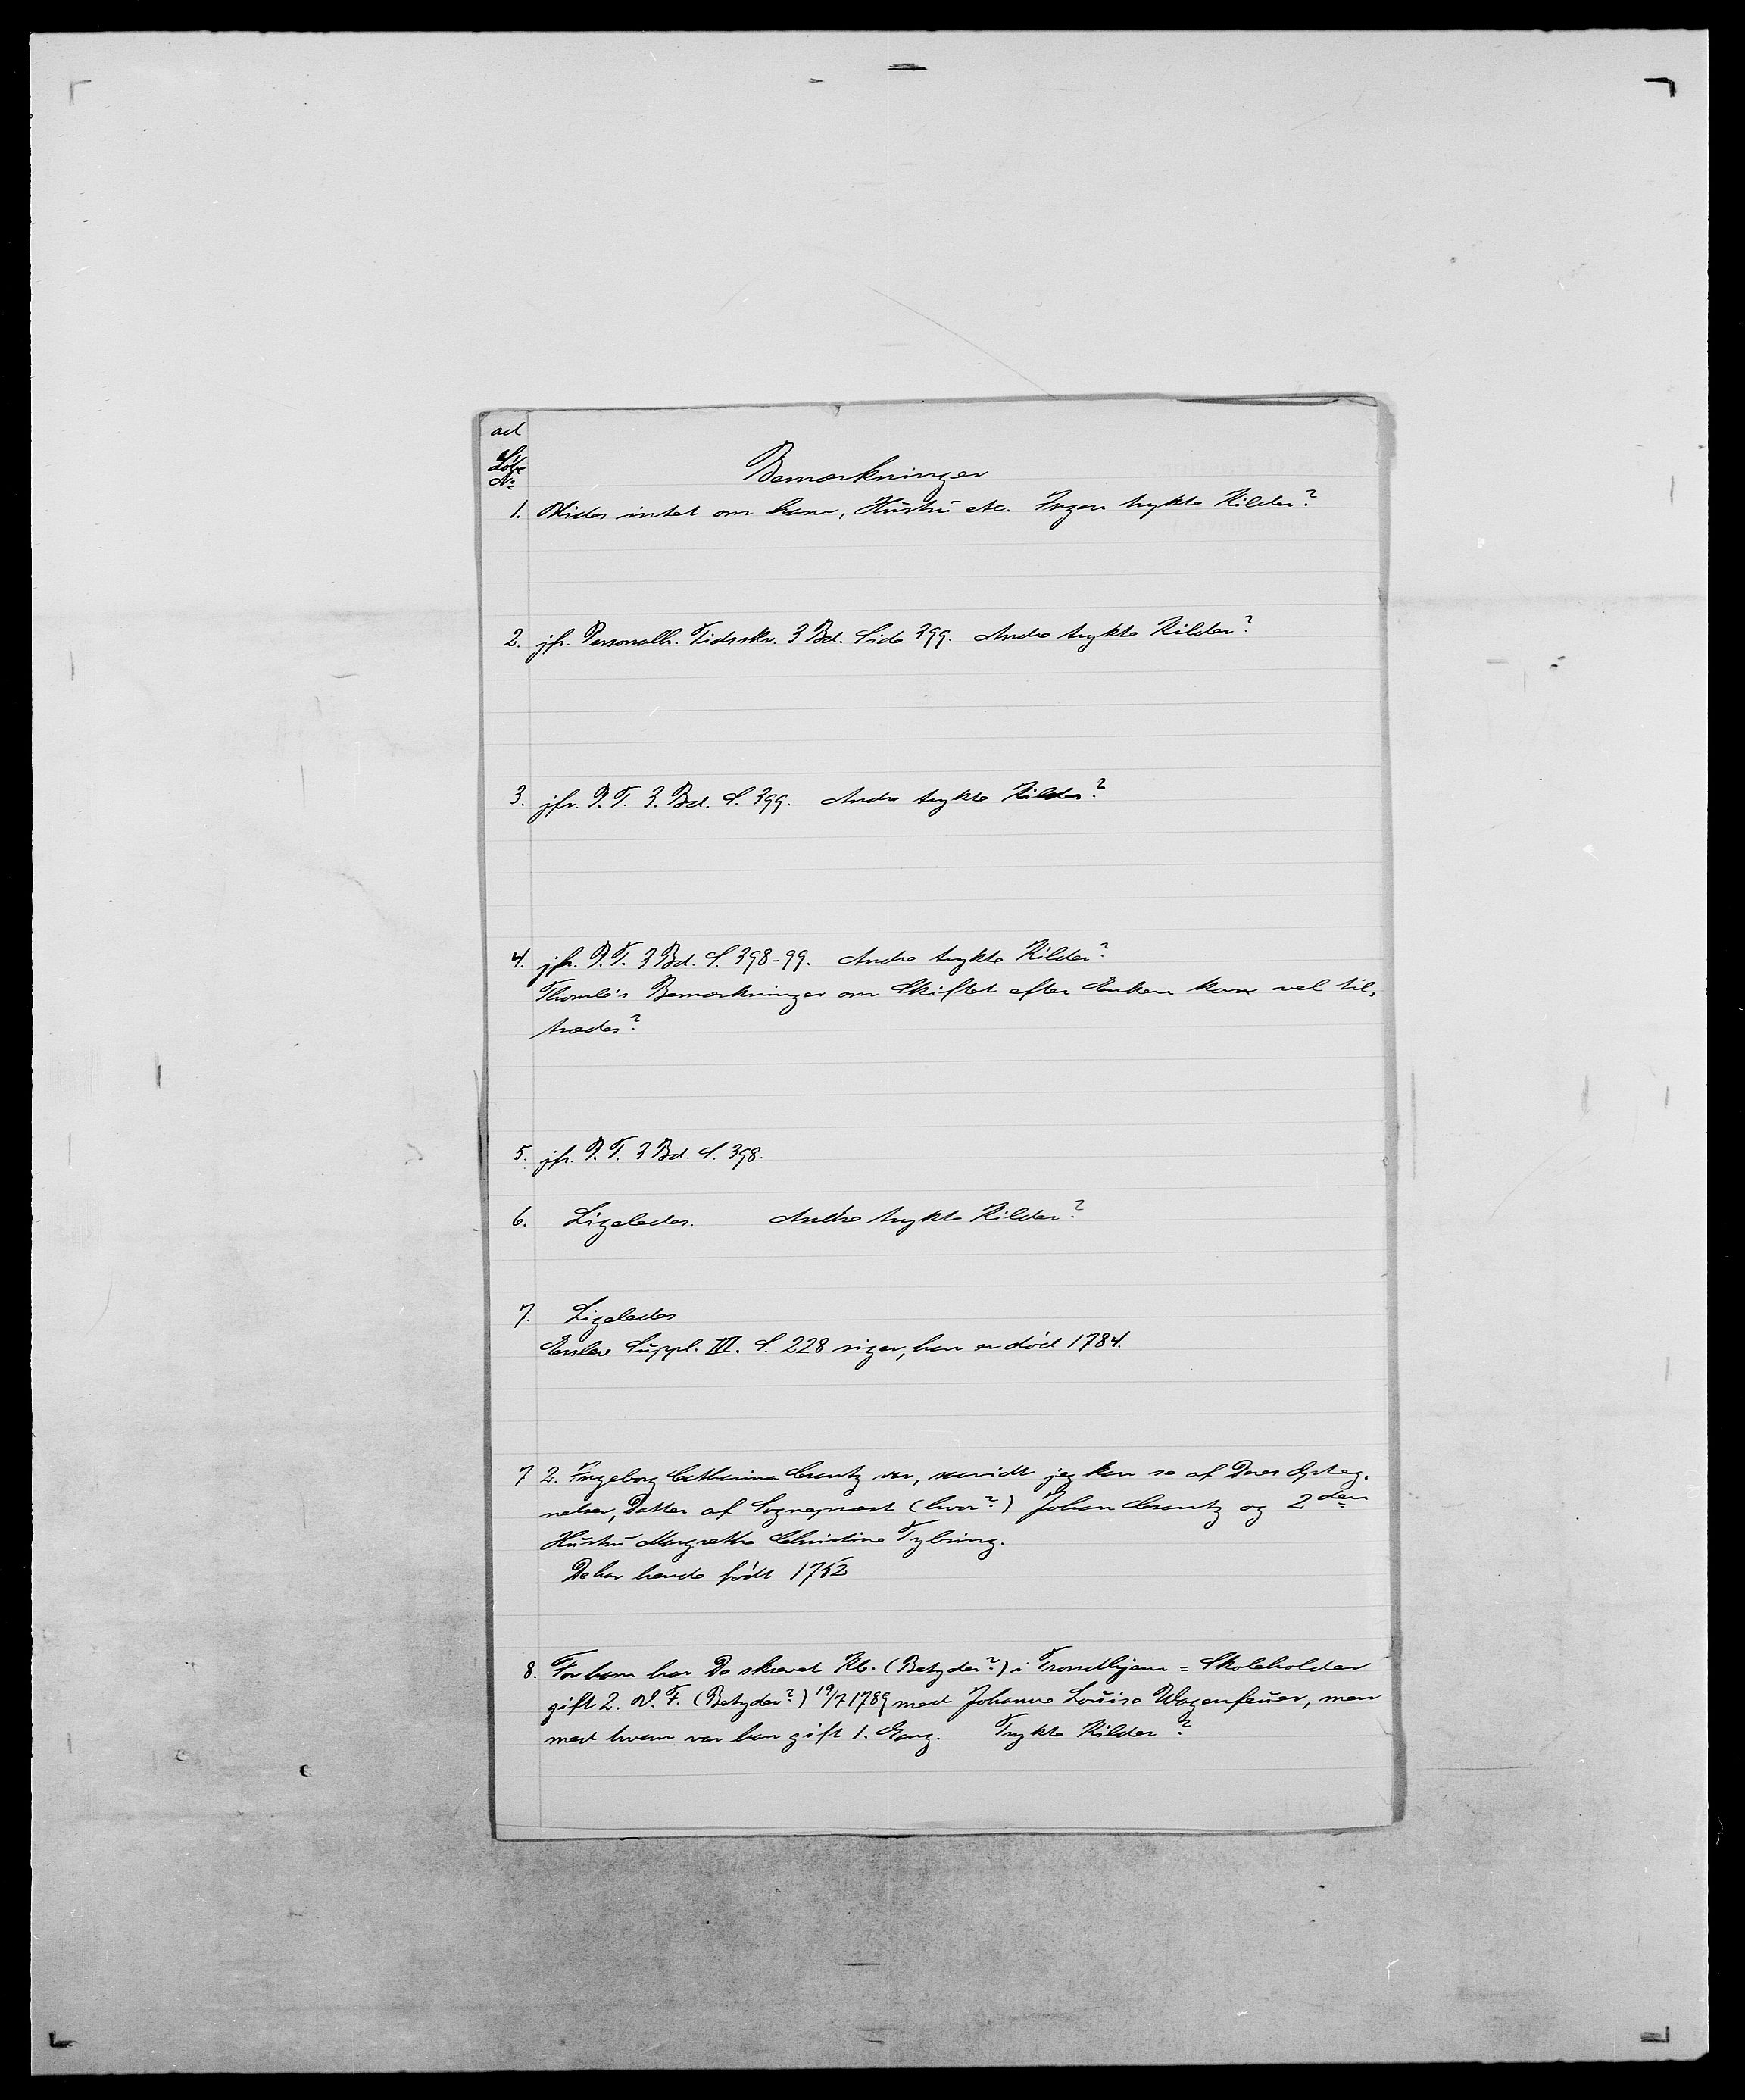 ad
Løbe
No
Bemærkninger
1. Vides intet om ham, Hustru etc. Ingen trykte Kilder?
2. jfr. Personalh. Tidsskr. 3 Bd. Side 399. Andre trykte Kilder?
3. jfr. P. T. 3. Bd. S. 399. Andre trykte Kilder?
4. jfr. P. T. 3 Bd. S. 398-99. Andre trykte Kilder?
Thomle's Bemærkninger om Skiftet efter Enken kan vel til-
trædes?
5. jfr. P. T. 3 Bd. S. 398.
6. Ligeledes. Andre trykte Kilder?
7. Ligeledes
Erslew Suppl. III. S. 228 siger, han er død 1784.
7 2. Ingeborg Catharina Crantz var, saavidt jeg kan se af Deres Opteg-
nelser, Datter af Sognepræst (hvor?) Johan Crantz og 2den
Hustru Margrethe Christine Tybring.
De har hende født 1752
8. For ham har De skrevet Kb. (Betyder?) i Trondhjem = Skoleholder
gift 2. V. F. (Betyder?) 19/7 1789 med Johanne Louise Wagenfeuer, men
med hvem var han gift 1. Gang. Trykte Kilder?